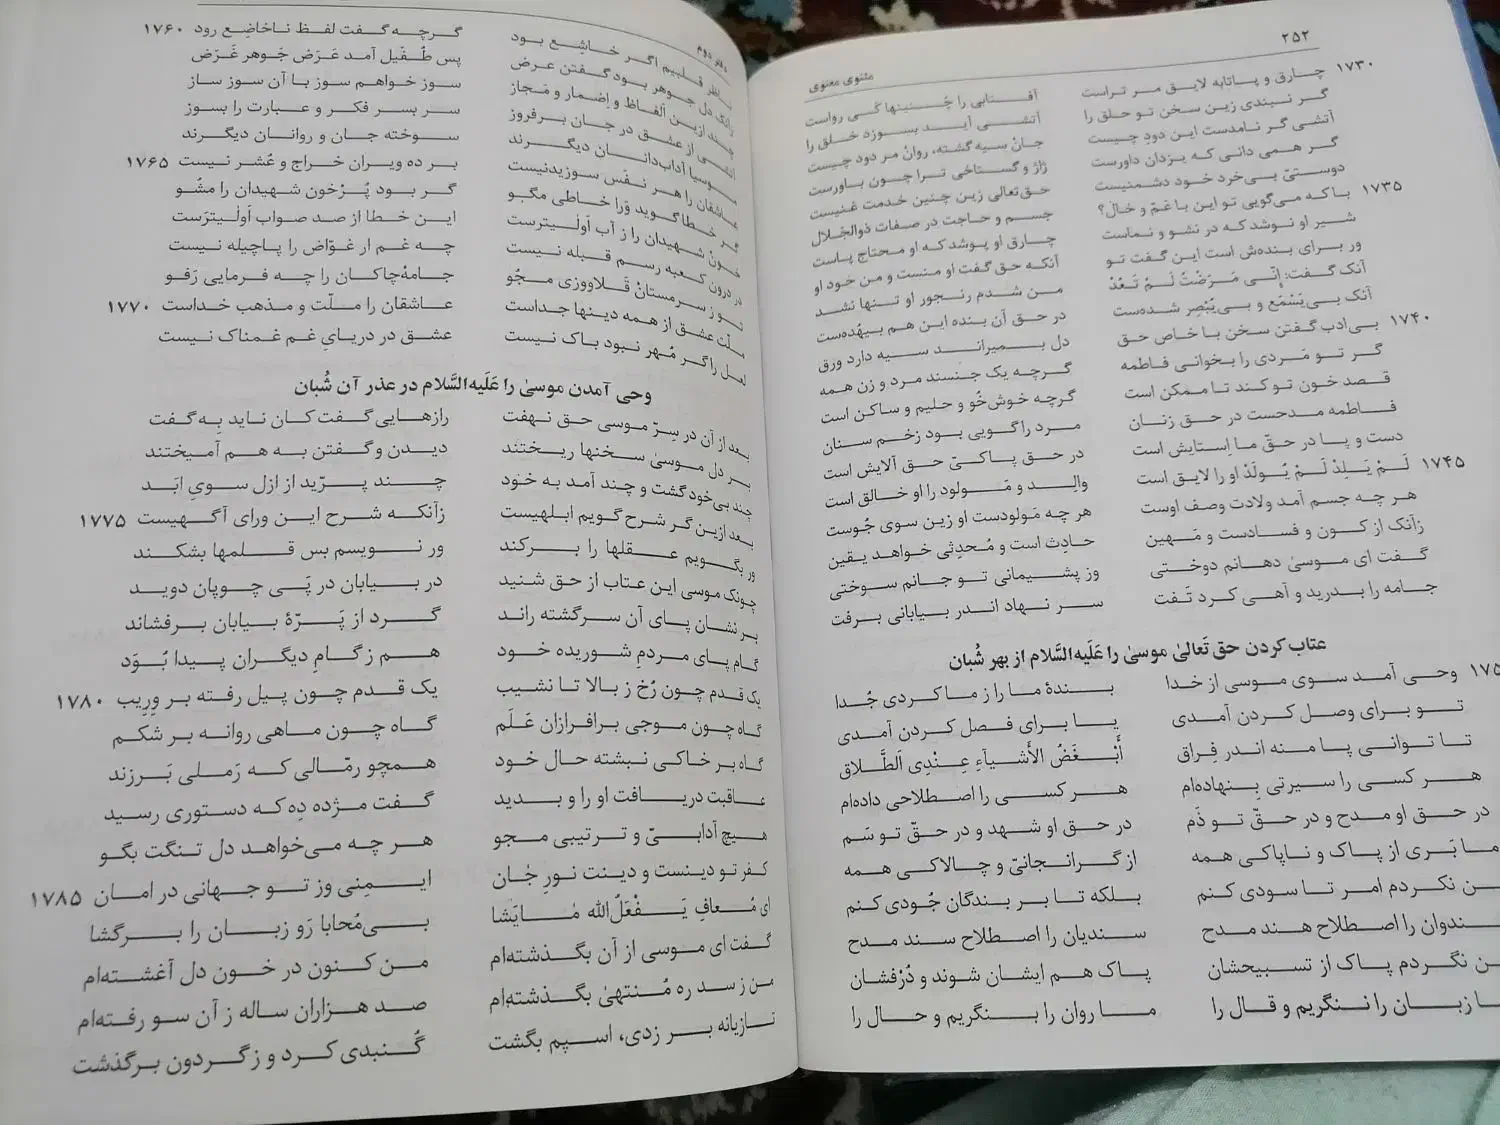 ۲۵۲
مثنوی معنوی
۱۷۳۰ چارق و پاتابه لایق مر تراست آفتابی را چُنینها کَی رواست
گر نبندی زین سخن تو حلق را آتشی آید بسوزد خلق را
آتشی گر نامدست این دودِ چیست جانْ سیه گشته، روانْ مر دود چیست
گر همی دانی که یزدان داورست ژاژ و گستاخی ترا چون باورست
دوستیِّ بی‌خرد خود دشمنیست حق‌تعالی زین چنین خدمت غنیست
۱۷۳۵ با که می‌گویی تو این با عَمّ و خال؟ جسم و حاجت در صفات ذوالجلال
شیر او نوشد که در نشو و نماست چارق او پوشد که او محتاج پاست
ور برای بنده‌ش است این گفت تو آنکه حق گفت او منست و من خود او
آنک گفت: إِنّی مَرَضْتُ لَمْ تَعُدْ من شدم رنجور او تنها نشد
آنک بی‌یَسْمَع و بی‌یُبْصِر شده‌ست در حق آن بنده این هم بیهُده‌ست
۱۷۴۰ بی‌ادب گفتن سخن با خاص حق دل بمیراند سیه دارد ورق
گر تو مَردی را بخوانی فاطمه گرچه یک جنسند مرد و زن همه
قصد خون تو کند تا ممکن است گرچه خوش‌خُو و حلیم و ساکن است
فاطمه مدحست در حق زنان مرد را گویی بود زخم سنان
دست و پا در حقّ ما اِستایش است در حق پاکیّ حق آلایش است
۱۷۴۵ لَمْ یَلِدْ لَمْ یُولَدْ او را لایق است والِد و مَولود را او خالق است
هر چه جسم آمد ولادت وصف اوست هر چه مَولودست او زین سوی جُوست
زآنک از کون و فسادست و مَهین حادِث است و مُحدِثی خواهد یقین
گفت ای موسیٰ دهانم دوختی وز پشیمانی تو جانم سوختی
جامه را بدرید و آهی کرد تَفت سر نهاد اندر بیابانی برفت
عتاب کردن حق تَعالیٰ موسیٰ را عَلَیه‌السَّلام از بهر شُبان
۱۷۵ وحی آمد سوی موسی از خدا بندهٔ ما را ز ما کردی جُدا
تو برای وصل کردن آمدی یا برای فصل کردن آمدی
تا توانی پا منه اندر فِراق أَبْغَضُ الأَشْیآءِ عِنْدِی الطَّلاق
هر کسی را سیرتی بِنهاده‌ام هر کسی را اصطلاحی داده‌ام
در حق او مدح و در حقّ تو ذَم در حق او شهد و در حقّ تو سَم
ما بَری از پاک و ناپاکی همه از گرانجانیّ و چالاکی همه
ن نکردم امر تا سودی کنم بلکه تا بر بندگان جُودی کنم
ندوان را اصطلاح هند مدح سندیان را اصطلاح سند مدح
ن نگردم پاک از تسبیحشان پاک هم ایشان شوند و دُرْفشان
ا زبان را ننگریم و قال را ما روان را بنگریم و حال را
دفتر دوم
ناظر قلبیم اگر خاشِع بود گرچه گفت لفظ ناخاضِع رود ۱۷۶۰
زانک دل جوهر بود گفتن عرض پس طُفَیل آمد عَرَض جَوهر غَرَض
چند ازین اَلفاظ و اِضمار و مَجاز سوز خواهم سوز با آن سوز ساز
آتشی از عشق در جان برفروز سر بسر فکر و عبارت را بسوز
موسیا آداب‌دانان دیگرند سوخته جان و روانان دیگرند
عاشقان را هر نفَس سوزیدنیست بر ده ویران خراج و عُشر نیست ۱۷۶۵
گر خطا گوید وَرا خاطی مگو گر بود پُرْخون شهیدان را مشُو
خونْ شهیدان را ز آب اَولیٰترست این خطا از صد صواب اَولیٰترَست
در درون کعبه رسم قبله نیست چه غم ار غوّاض را پاچیله نیست
تو ز سرمستانْ قَلاووزی مجُو جامه‌چاکان را چه فرمایی رَفو
ملّت عشق از همه دینها جداست عاشقان را ملّت و مذهب خداست ۱۷۷۰
لعل را گر مُهر نبود باک نیست عشق در دریایِ غم غمناک نیست
وحی آمدن موسیٰ را عَلَیه‌السَّلام در عذر آن شُبان
بعد از آن در سِرّ موسی حق نهفت رازهایی گفت کان ناید بِه گفت
بر دل موسیٰ سخنها ریختند دیدن و گفتن به هم آمیختند
چند بی‌خود گشت و چند آمد به خود چند پرّید از ازل سویِ ابَد
بعد ازین گر شرح گویم ابلهیست زآنکه شرح این ورای آگهیست ۱۷۷۵
ور بگویم عقلها را برکند ور نویسم بس قلمها بشکند
چونک موسی این عتاب از حق شنید در بیابان در پَی چوپان دوید
بر نشان پای آن سرگشته راند گرد از پَرّهٔ بیابان برفشاند
گام پای مردمِ شوریده خود هم ز گامِ دیگران پیدا بُوَد
یک قدم چون رُخ ز بالا تا نشیب یک قدم چون پیل رفته بر وِرِیب ۱۷۸۰
گاه چون موجی برافرازان عَلَم گاه چون ماهی روانه بر شکم
گاه بر خاکی نبشته حال خود همچو رمّالی که رَملی بَرزند
عاقبت دریافت او را و بدید گفت مژده دِه که دستوری رسید
هیچ آدابیّ و ترتیبی مجو هر چه می‌خواهد دل تنگت بگو
کفر تو دینست و دینت نورِ جٰان ایمِنی وز تو جهانی در امان ۱۷۸۵
ای مُعافِ یَفْعَلُ‌الله مٰایَشا بی‌مُحابا رَو زبان را برگشا
گفت ای موسی از آن بگذشته‌ام من کنون در خون دل آغشته‌ام
من ز سدره مُنتهیٰ بگذشته‌ام صد هزاران ساله ز آن سو رفته‌ام
تازیانه بر زدی، اسپم بگشت گُنبدی کرد و ز گردون برگذشت